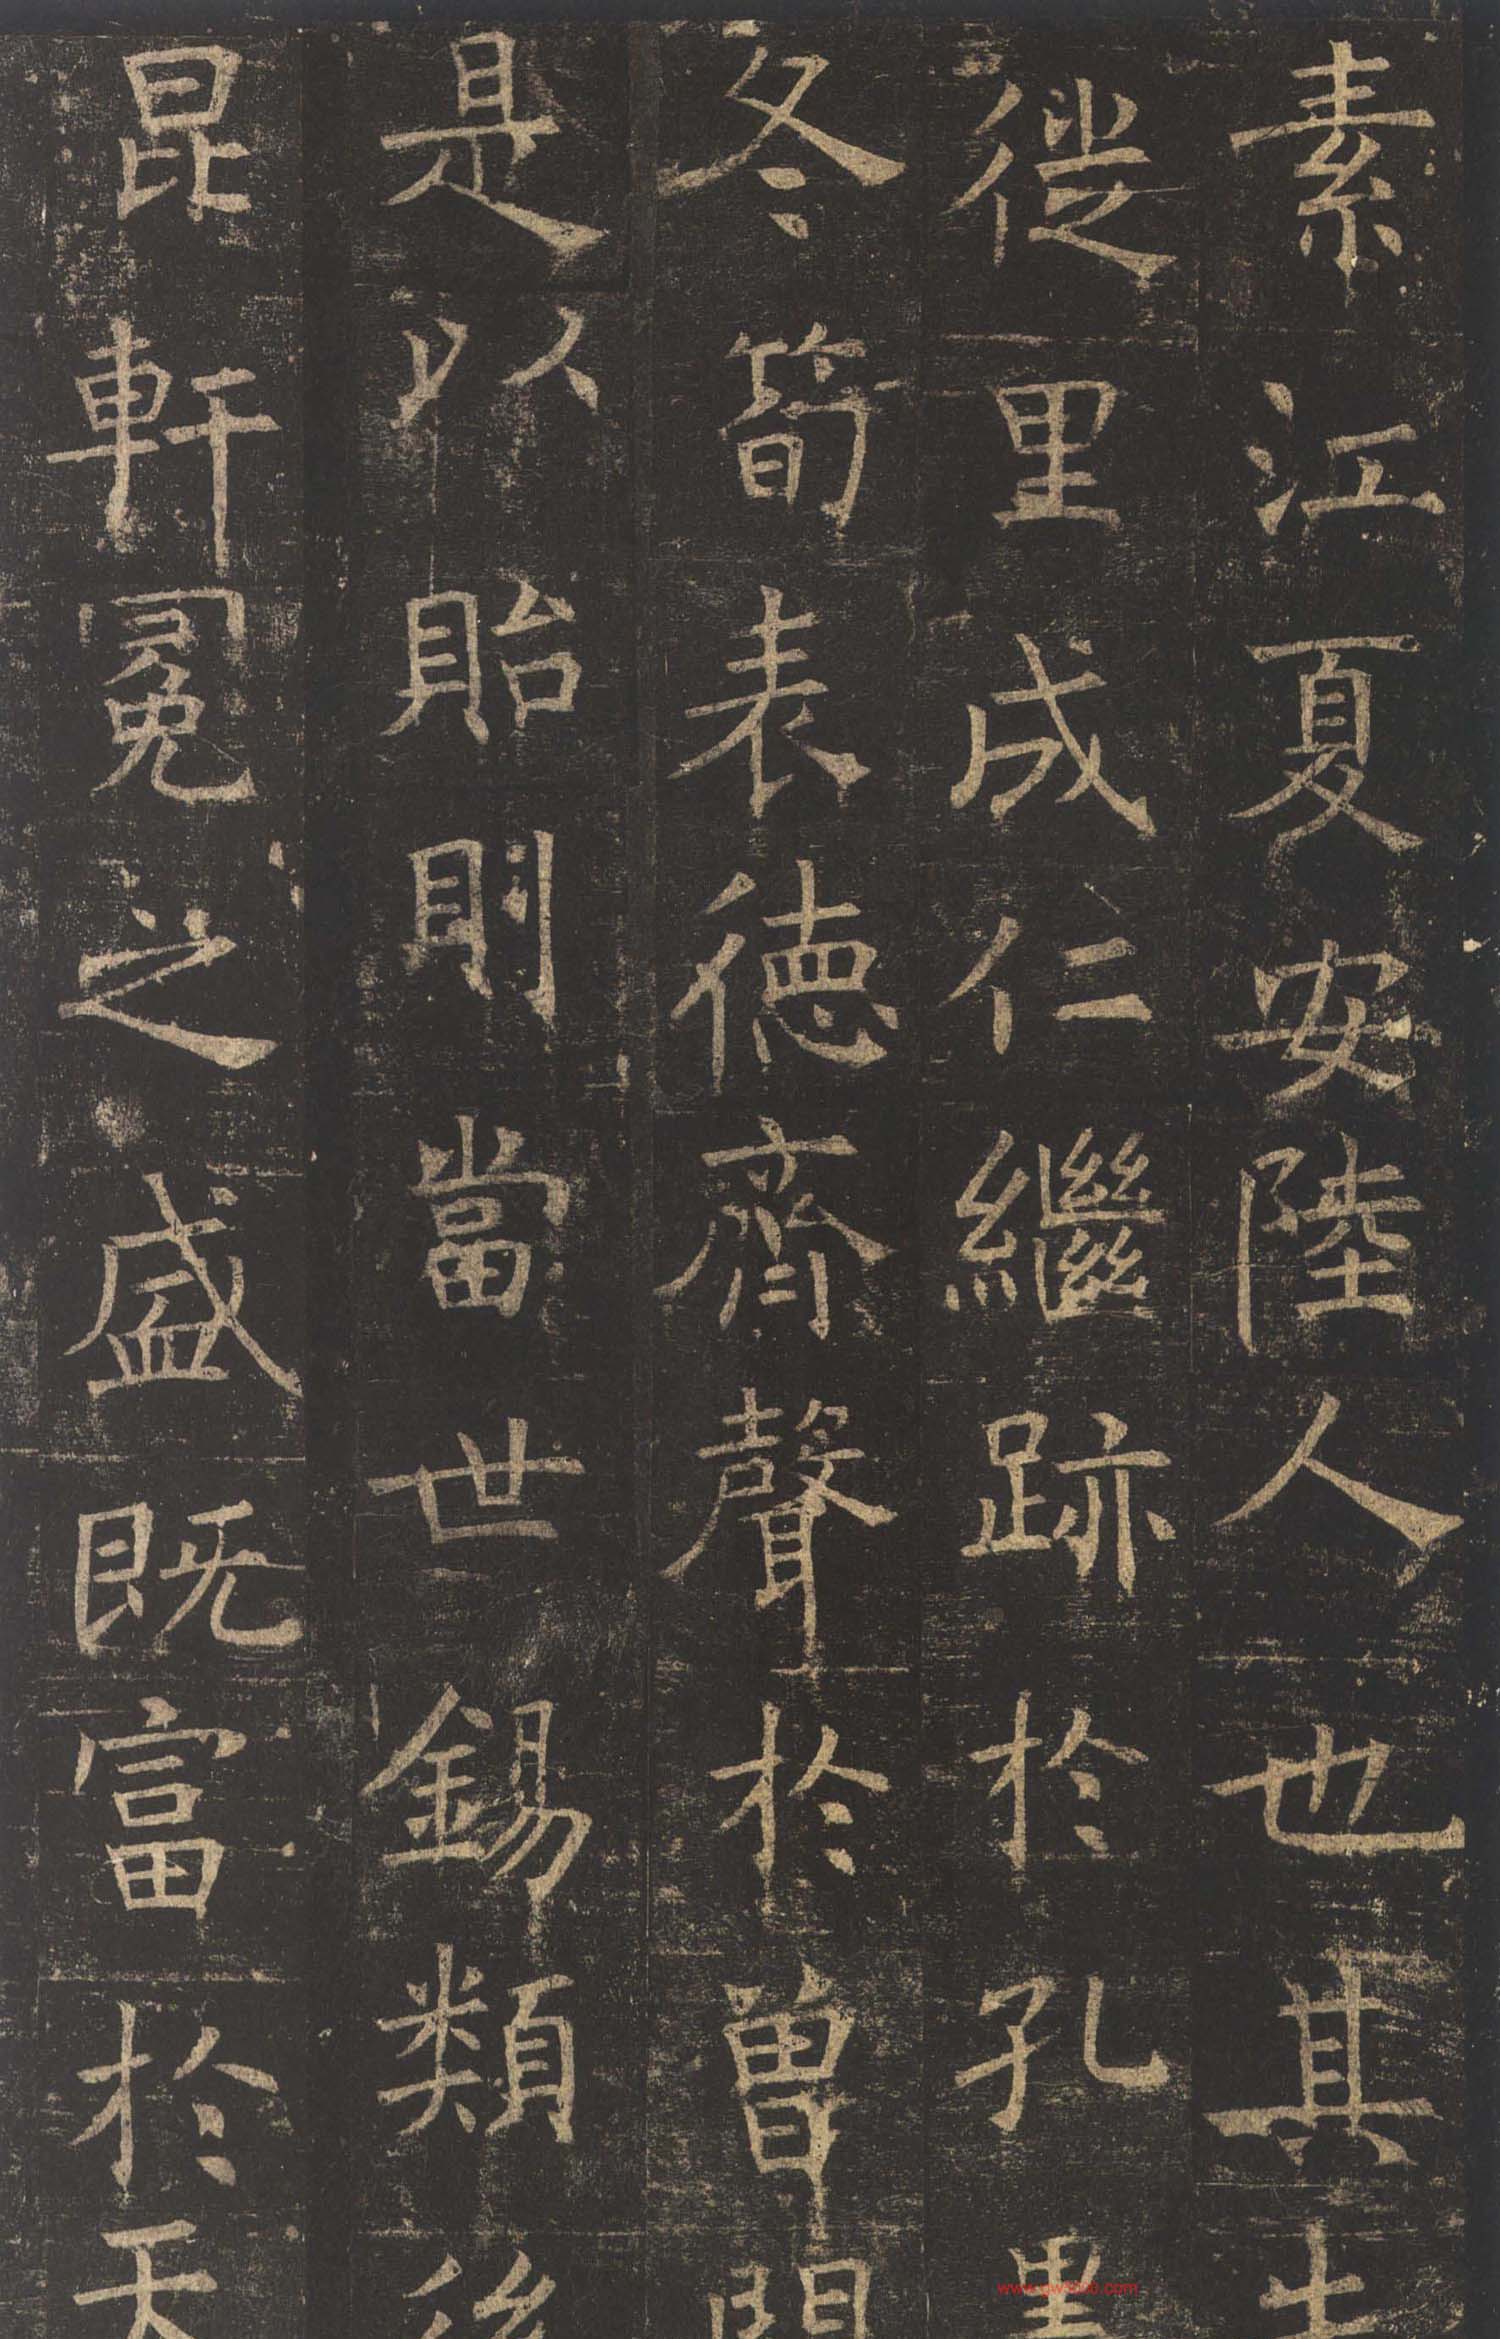 素江夏安陸人也其
徙里成仁繼跡於孔
冬筍表德齊聲於曾
是以貽則當世錫類後
昆軒冕之盛既富於天